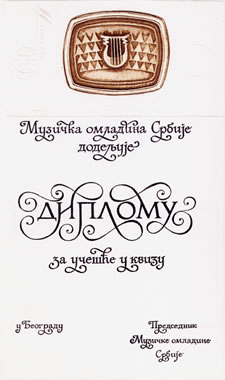 Музичка омладина Србије
додељује
ДИПЛОМУ
за учешће у квизу
у Београду
Председник
Музичке омладине
Србије